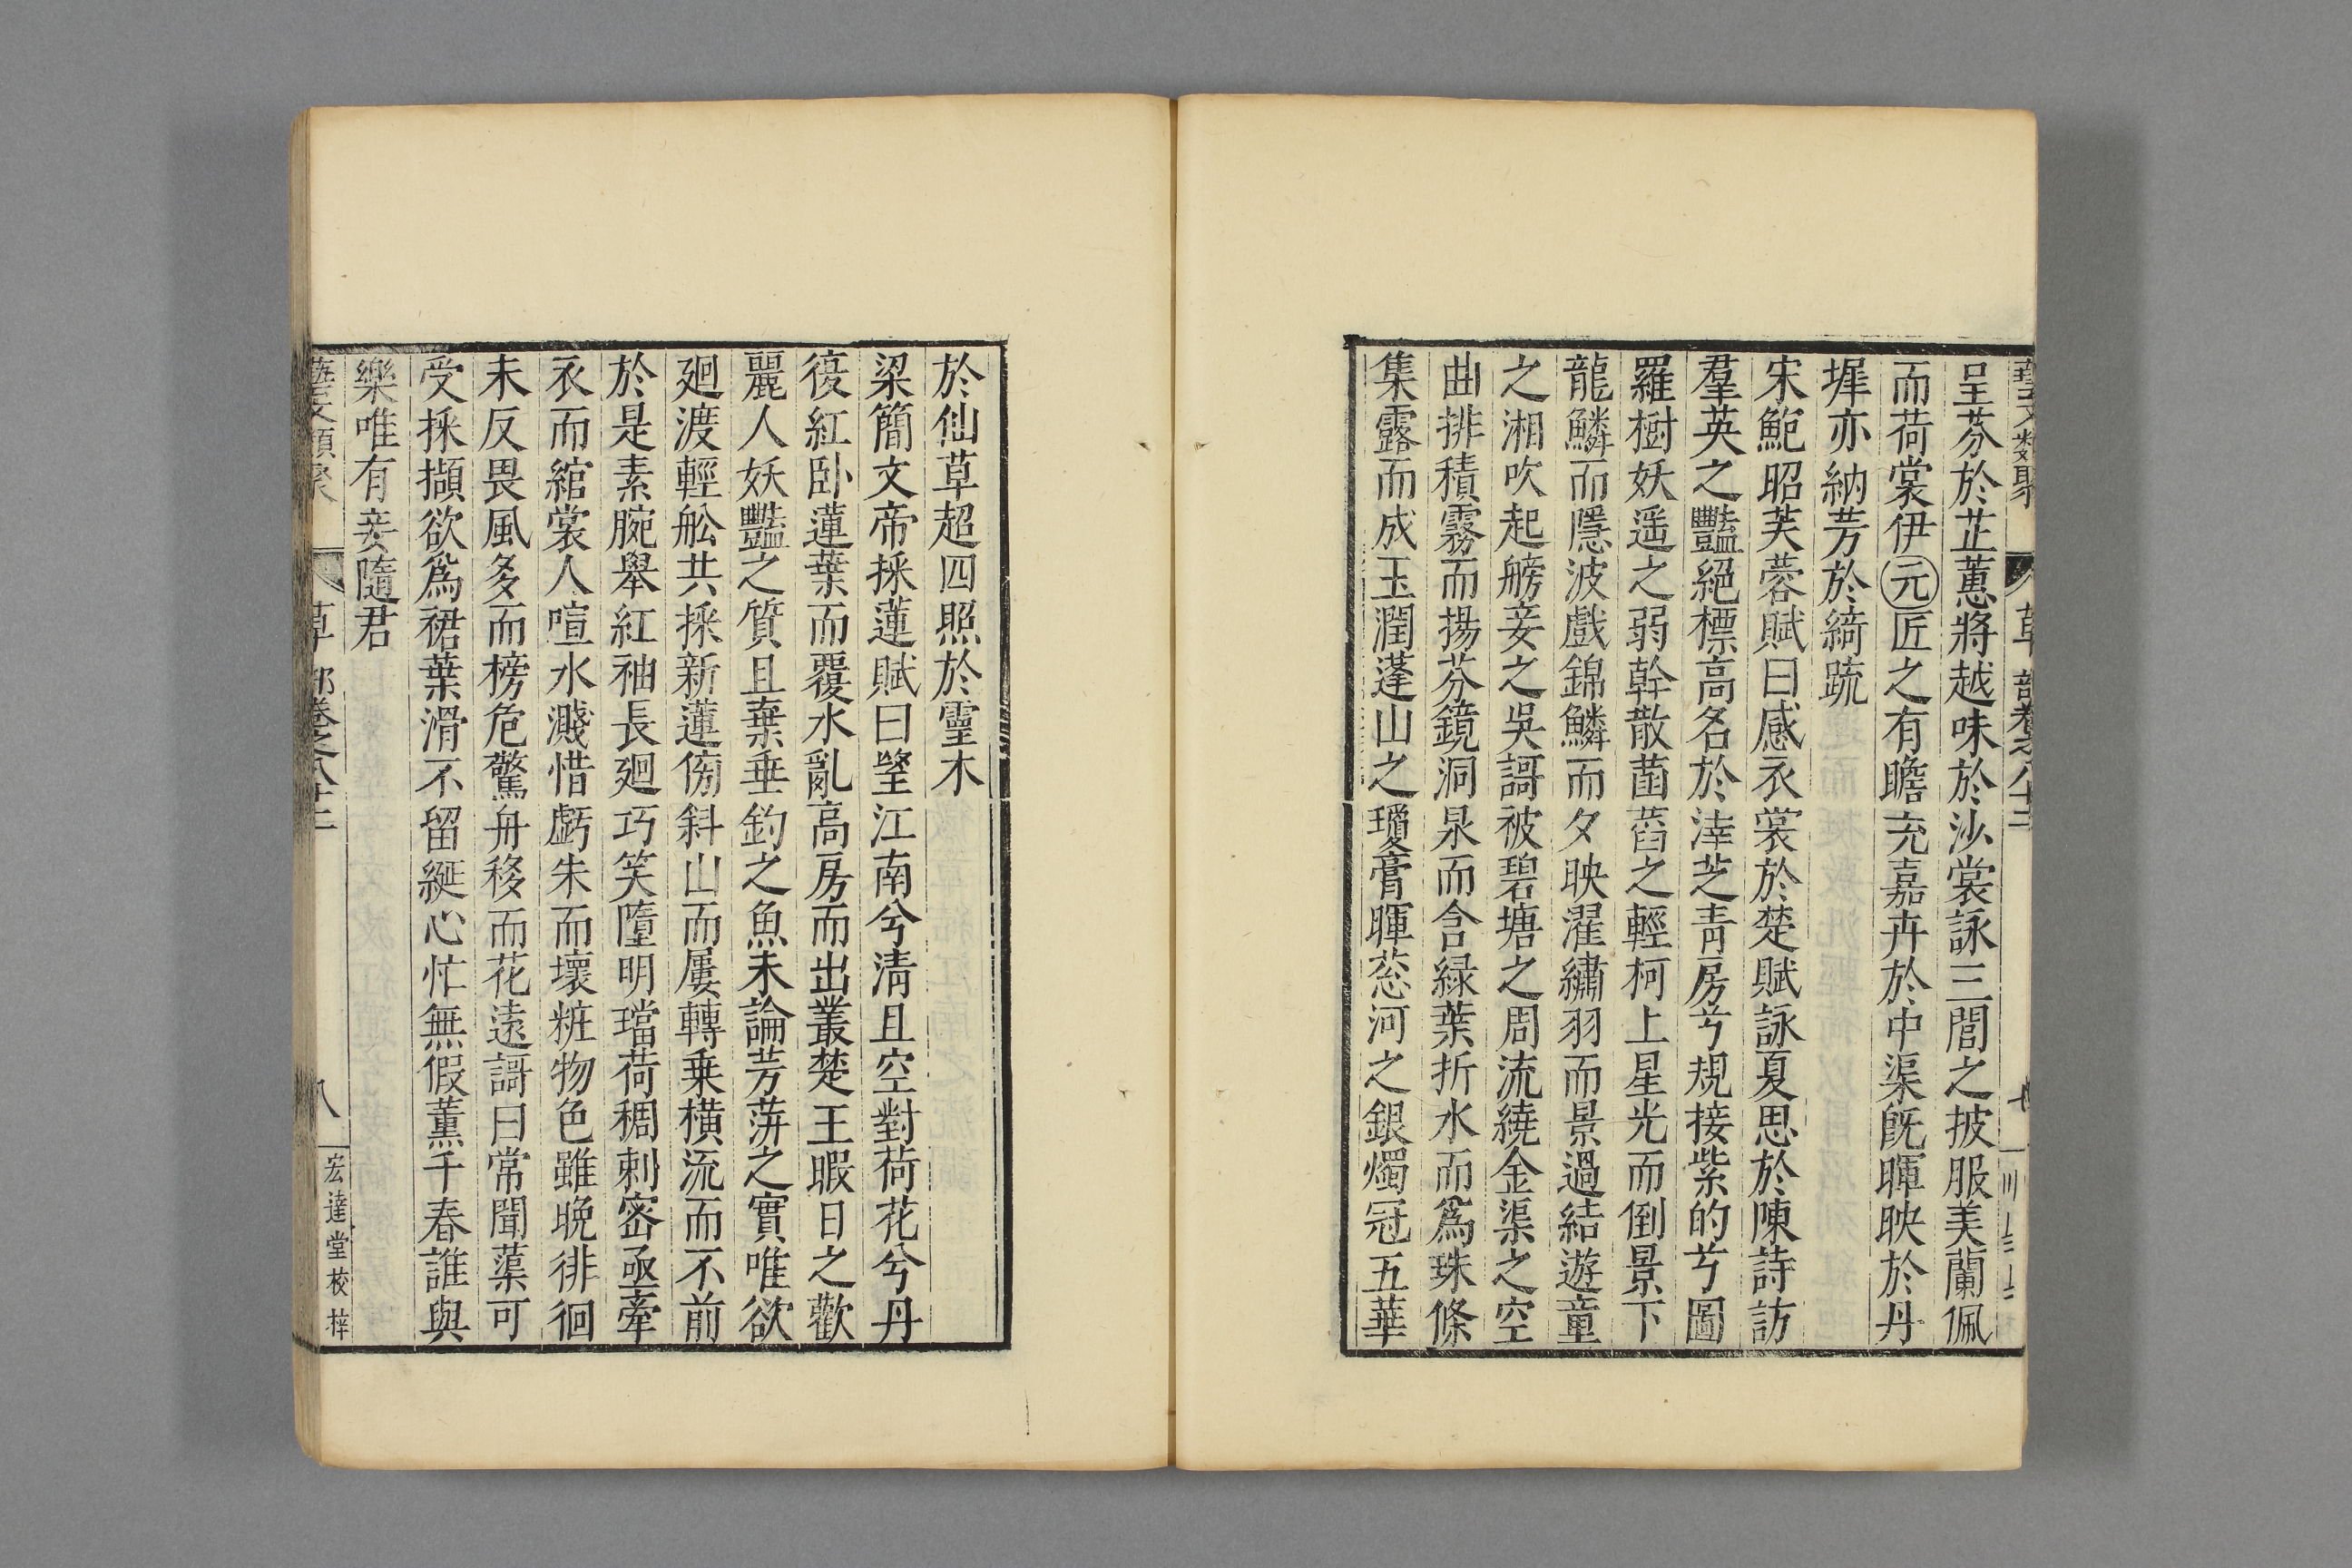 藝文類聚 草部卷之八十二 七
呈芬於芷蕙將越味於沙裳詠三閭之披服美蘭佩
而荷裳伊元匠之有瞻充嘉卉於中渠旣暉映於丹
墀亦納芳於綺疏
宋鮑昭芙蓉賦曰感衣裳於楚賦詠夏思於陳詩訪
羣英之豔絕標高名於澤芝青房兮規接紫的兮圖
羅樹妖遥之弱幹散菡萏之輕柯上星光而倒景下
龍鱗而隱波戲錦鱗而夕映濯繡羽而景過結遊童
之湘吹起艕妾之吳謌被碧塘之周流繞金渠之空
曲排積霧而揚芬鏡洞泉而含緑葉折水而爲珠條
集露而成玉潤蓬山之瓊膏暉葱河之銀燭冠五華
於仙草超四照於靈木
梁簡文帝採蓮賦曰望江南兮淸且空對荷花兮丹
復紅卧蓮葉而覆水亂高房而出叢楚王暇日之歡
麗人妖豔之質且棄垂釣之魚未論芳蓱之實唯欲
廻渡輕舩共採新蓮傍斜山而屢轉乗橫流而不前
於是素腕舉紅袖長廻巧笑墮明璫荷稠刺密亟牽
衣而綰裳人喧水濺惜虧朱而壞粧物色雖晚徘徊
未反畏風多而榜危驚舟移而花遠謌曰常聞蕖可
受採擷欲爲裙葉滑不留綖心忙無假薰千春誰與
樂唯有妾隨君
藝文類聚 草部卷之八十二 八 宏達堂校梓